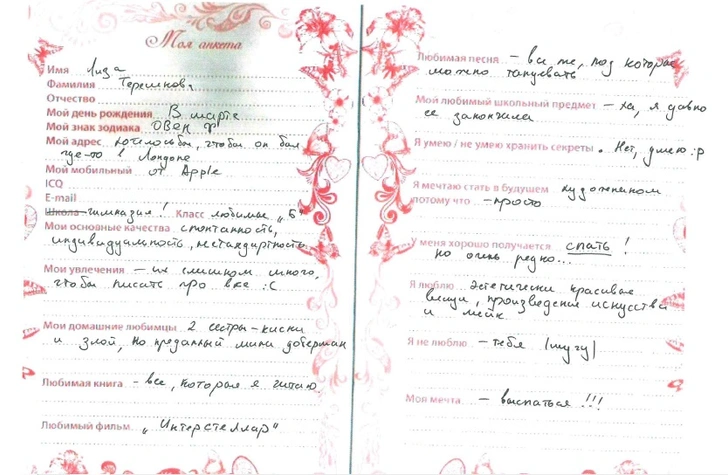 Моя анкета
Имя Лиза
Фамилия Терешнова
Отчество
Мой день рождения В марте
Мой знак зодиака ОВЕН ♈
Мой адрес хотелось бы, чтобы он был
где-то в Лондоне
Мой мобильный от Apple
ICQ
E-mail
Школа гимназия! Класс любимые „Б"
Мои основные качества спонтанность,
индивидуальность, нестандартность
Мои увлечения – их слишком много,
чтобы писать про все :С
Мои домашние любимцы 2 сестры-киски
и злой, но преданный мини доберман
Любимая книга – все, которая я читаю
Любимый фильм „Интерстеллар"
Любимая песня – все те, под которые
можно танцевать
Мой любимый школьный предмет – ха, я давно
ее закончила
Я умею / не умею хранить секреты. Нет, умею :р
Я мечтаю стать в будущем художником
потому что – просто
У меня хорошо получается спать!
но очень редко...
Я люблю эстетически красивые
вещи, произведения искусства
и мейк
Я не люблю – тебя |шучу|
Моя мечта – выспаться!!!